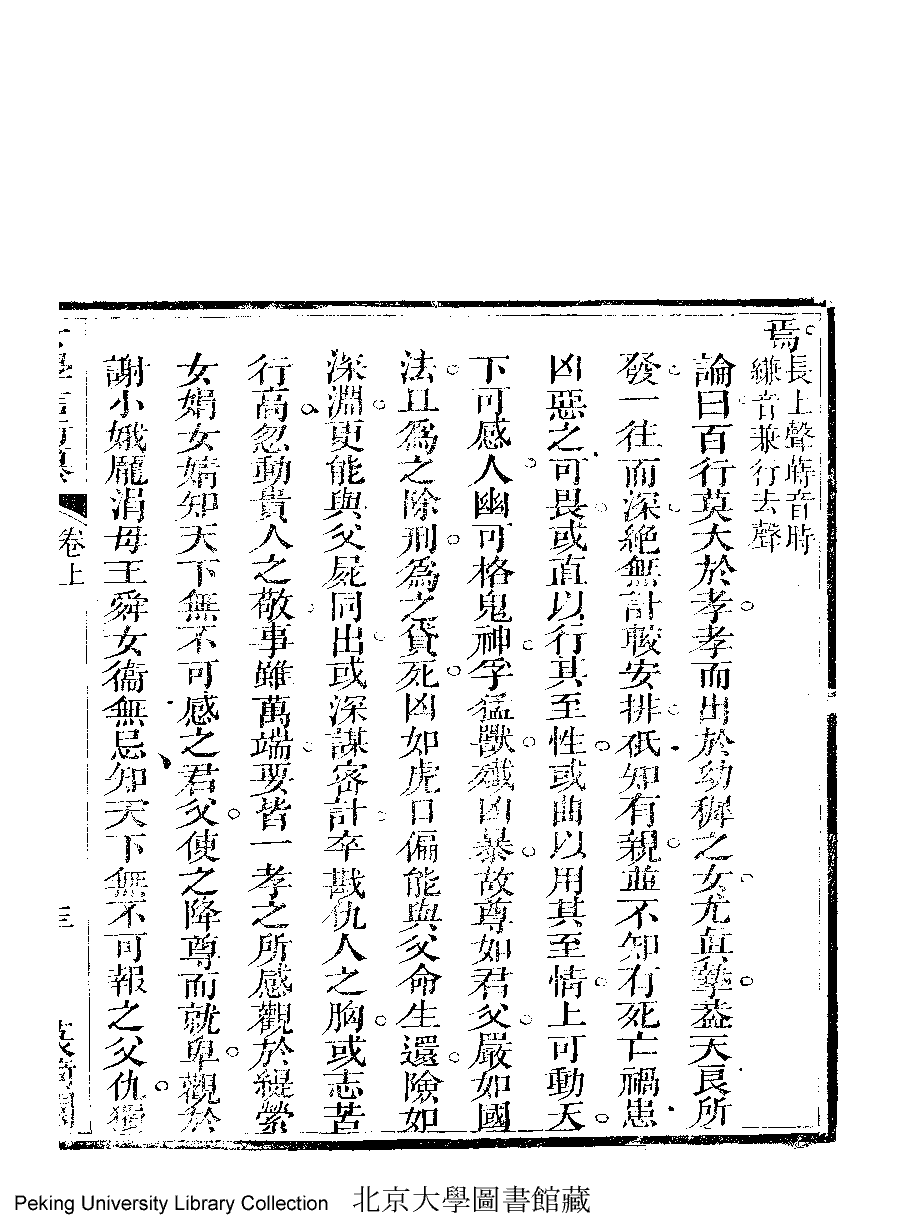 焉長上聲蒔音時
縑音兼行去聲
論曰百行莫大於孝孝而出於幼穉之女尤眞摯葢天良所
發一往而深絶無計較安排祇知有親並不知有死亡禍患
凶惡之可畏或直以行其至性或曲以用其至情上可動天
下可感人幽可格鬼神孚猛獸殲凶暴故尊如君父嚴如國
法且爲之除刑爲之貸死凶如虎口偏能與父命生還險如
深淵更能與父屍同出或深謀密計卒戡仇人之胸或志苦
行高忽動貴人之敬事雖萬端要皆一孝之所感觀於緹縈
女娟女婧知天下無不可感之君父使之降尊而就卑觀於
謝小娥龎涓母王舜女衞無忌知天下無不可報之父仇猶
卷上
三
Peking University Library Collection 北京大學圖書館藏